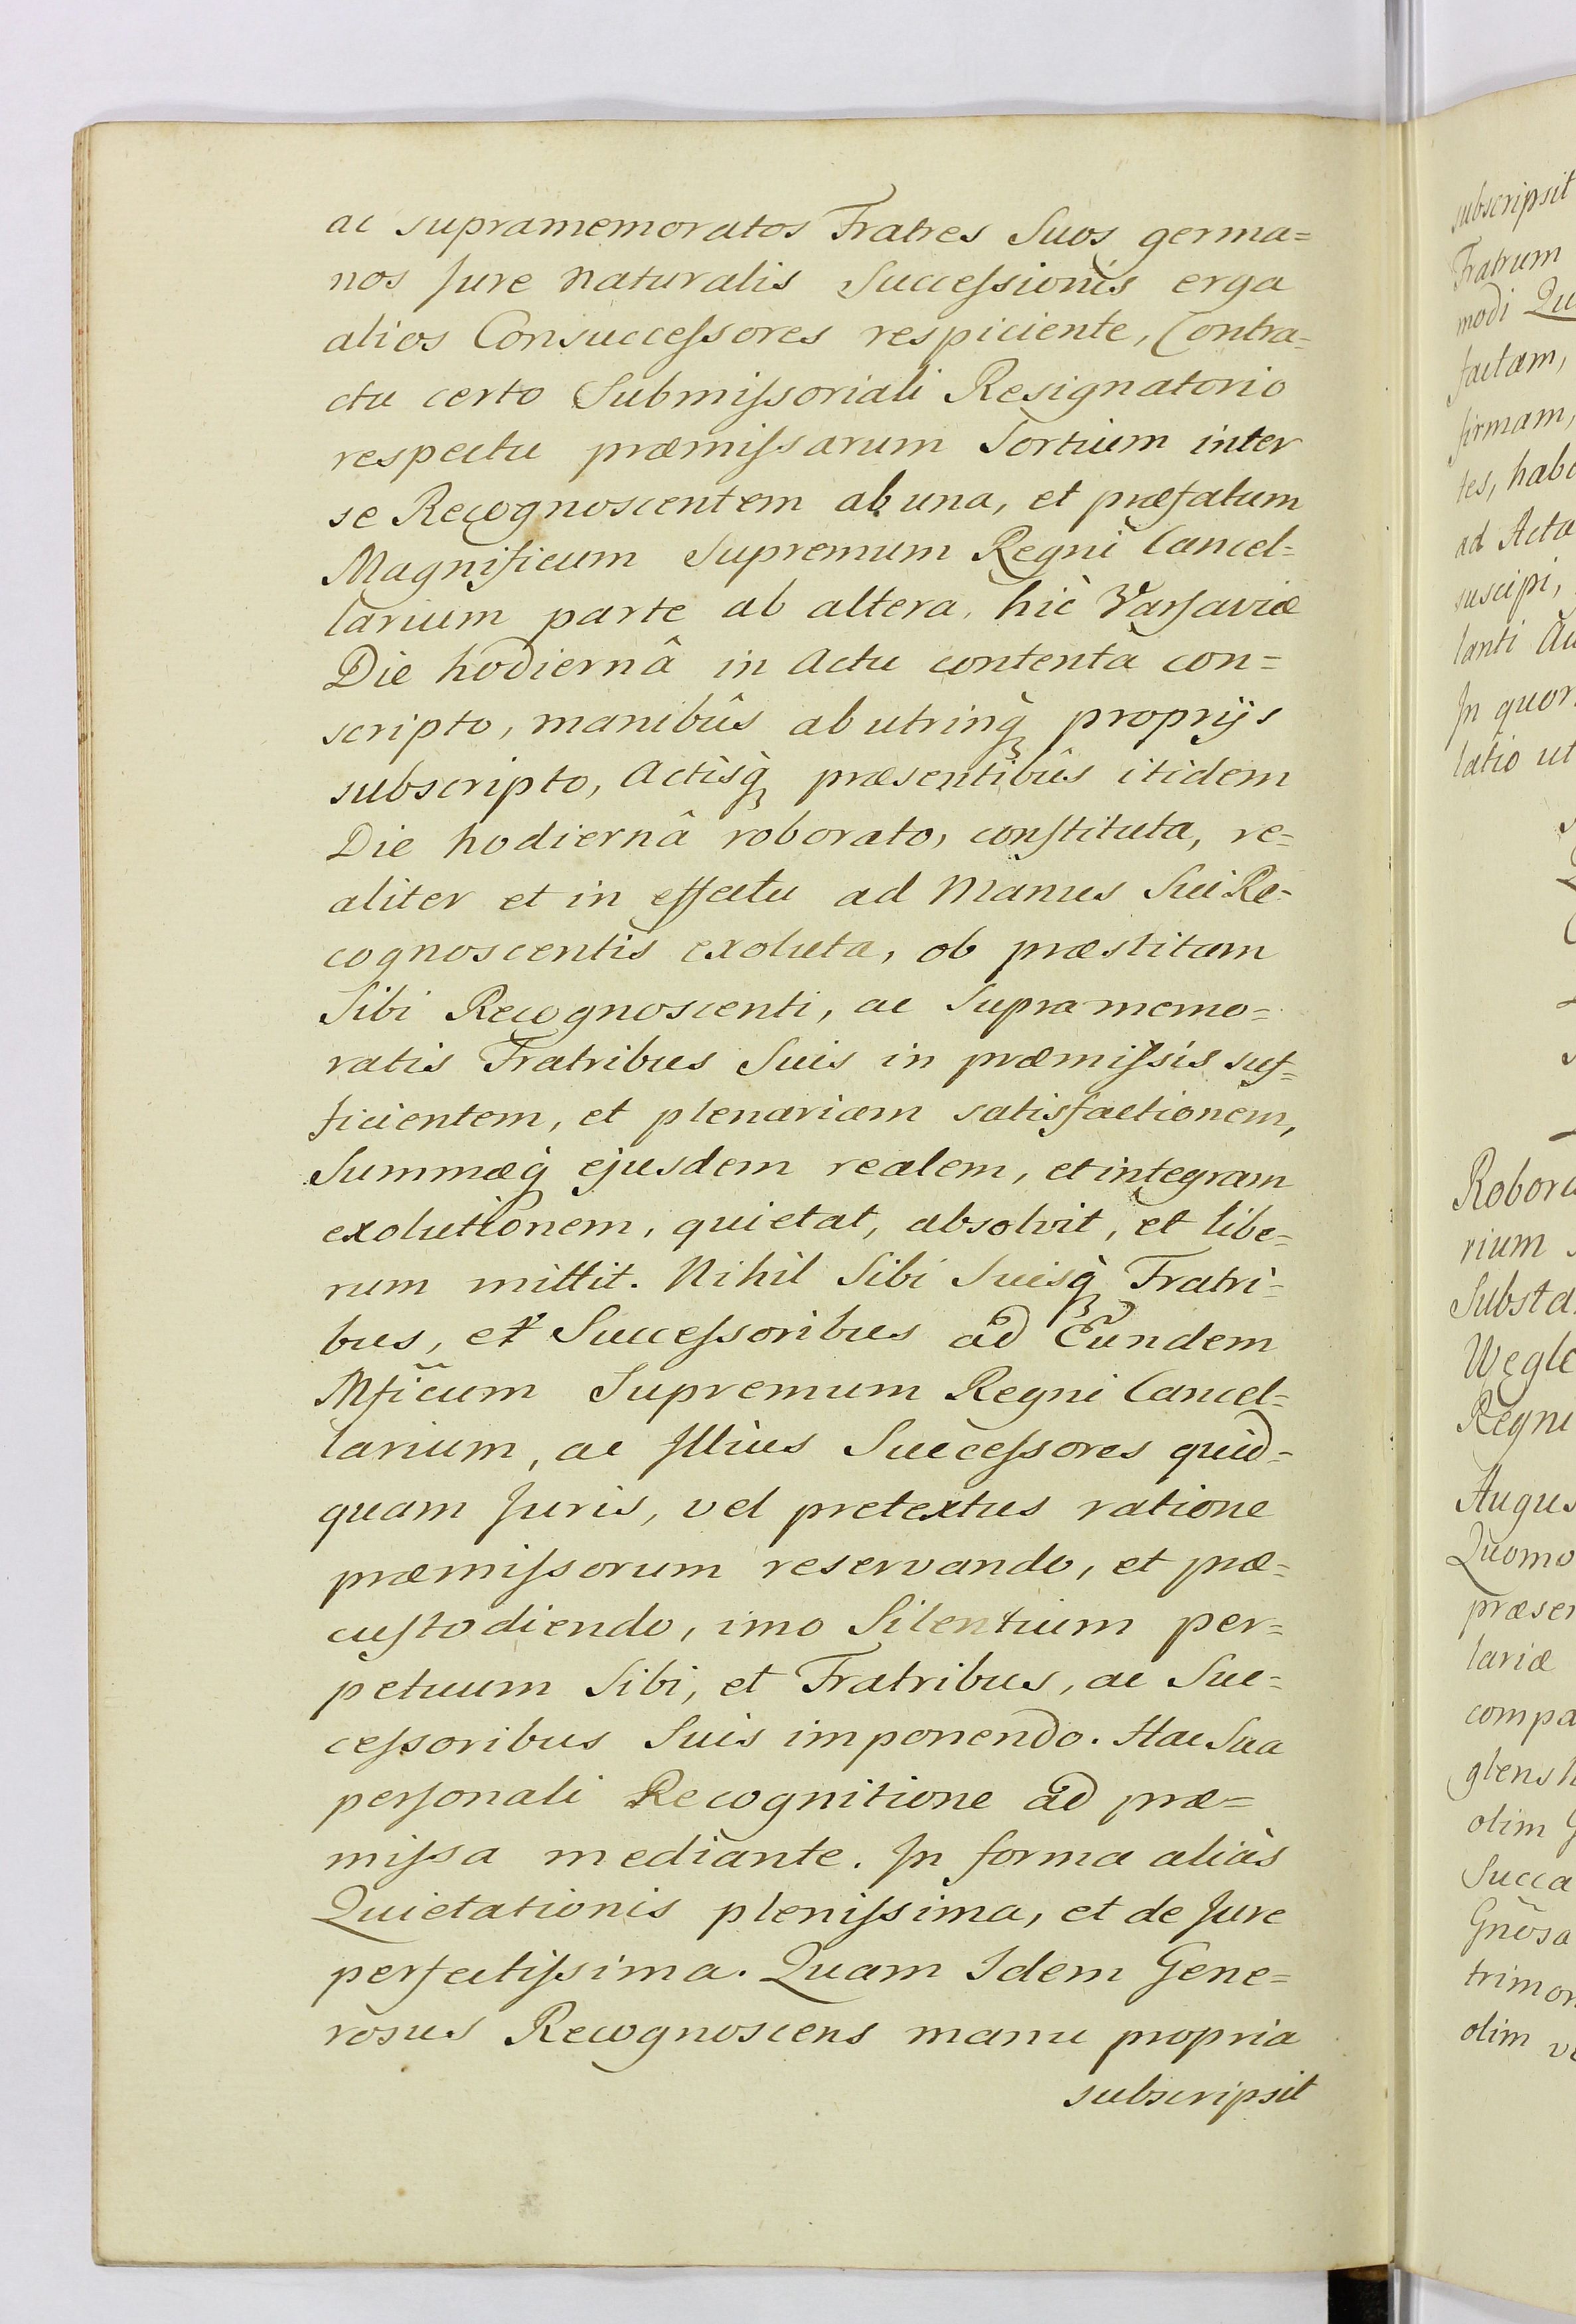 ac supramemoratos Fratres Suos germa=
nos Jure naturalis Succeſsionis erga
alios Consucceſsores respiciente, Contra=
ctu certo Submiſsoriali Resignatorio
respectu præmiſsarum Sortium inter
se Recognoscentem ab una, et præfatum
Magnificum Supremum Regni Cancel=
larium parte ab altera, hic Varſaviæ
Die hodiernâ in Actu contentâ con=
scripto, manibûs ab utrinq̀ proprijs
subscripto, Actisq̀ præsentibûs itidem
Die hodiernâ roborato, conſtituta, re=
aliter et in effectu ad Manus Sui Re=
cognoscentis exoluta, ob præstitam
Sibi Recognoscenti, ac Supra memo=
ratis Fratribus Suis in præmiſsis suf=
ficientem, et plenariam satisfactionem,
Summæq̀ ejusdem realem, et integram
exolutionem, quietat, absolvit, et libe=
rum mittit. Nihil Sibi Suisq̀ Fratri=
bus, et Succeſsoribus ad Eundem
Mficum Supremum Regni Cancel=
larium, ac Illius Succeſsores quid=
quam Juris, vel pretextus ratione
præmiſsorum reservando, et præ=
cuſtodiendo, imo Silentium per=
petuum Sibi, et Fratribus, ac Suc=
ceſsoribus Suis imponendo. Hac Sua
perſonali Recognitione ad præ=
miſsa mediante. In forma aliàs
Quietationis pleniſsima, et de Jure
perfectiſsima. Quam Idem Gene=
rosus Recognoscens manu propria
subscripsit
subscripsit
Fratrum
modi
factam,
firmam,
ad Acta
suscipi,
lanti
In quor
latio ut
rium
Regni
Quomo
lariæ
olim
olim